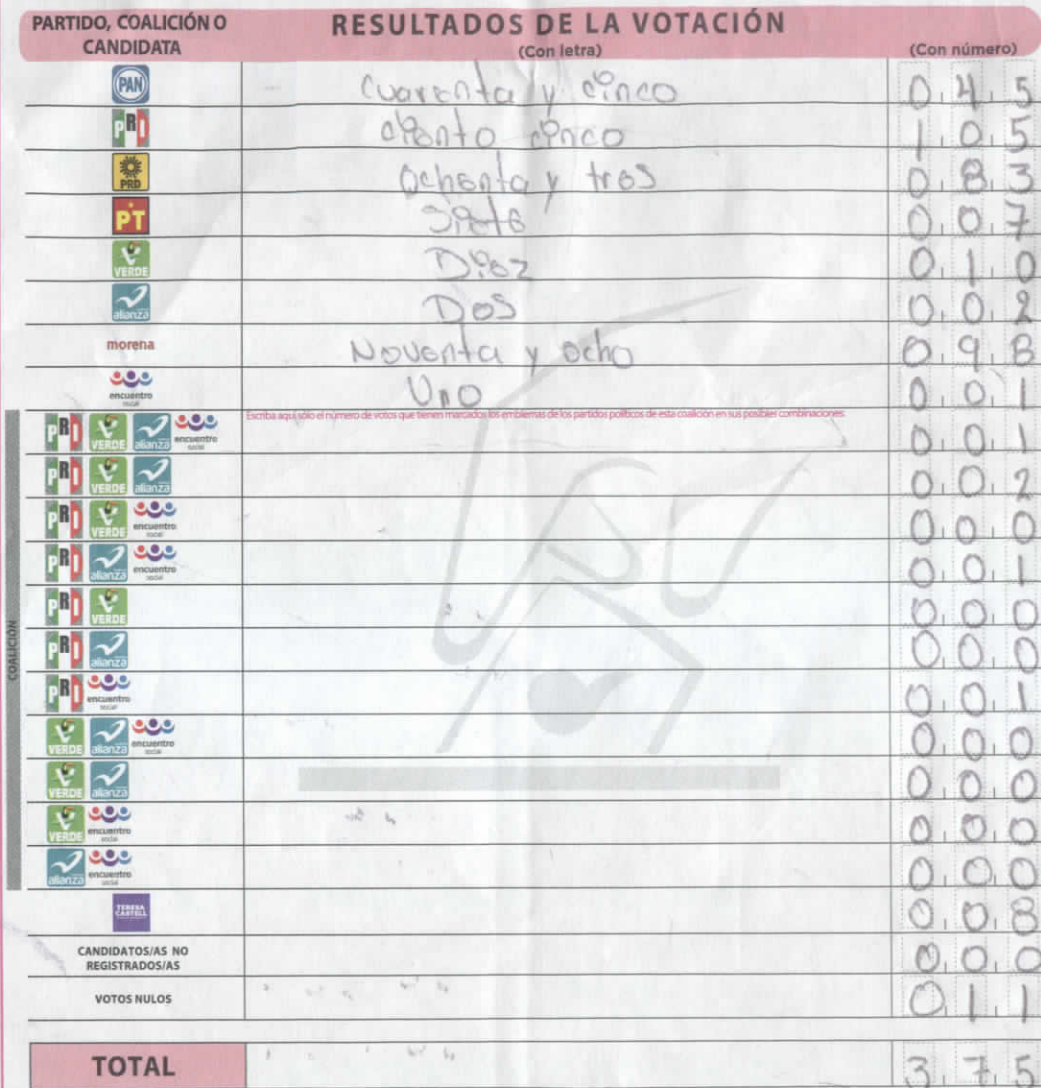 PARTIDO, COALICIÓN O CANDIDATA RESULTADOS DE LA VOTACIÓN (Con letra) (Con número)
PAN Cuarenta y cinco 0 4 5
PRI ciento cinco 1 0 5
PRD Ochenta y tres 0 8 3
PT Siete 0 0 7
VERDE Diez 0 1 0
alianza Dos 0 0 2
morena Noventa y ocho 0 9 8
encuentro social Uno 0 0 1
COALICIÓN
Escriba aquí sólo el número de votos que tienen marcados los emblemas de los partidos políticos de esta coalición en sus posibles combinaciones.
PRI VERDE alianza encuentro social 0 0 1
PRI VERDE alianza 0 0 2
PRI VERDE encuentro social 0 0 0
PRI alianza encuentro social 0 0 1
PRI VERDE 0 0 0
PRI alianza 0 0 0
PRI encuentro social 0 0 1
VERDE alianza encuentro social 0 0 0
VERDE alianza 0 0 0
VERDE encuentro social 0 0 0
alianza encuentro social 0 0 0
TERESA CASTELL 0 0 8
CANDIDATOS/AS NO REGISTRADOS/AS 0 0 0
VOTOS NULOS 0 1 1
TOTAL 3 7 5